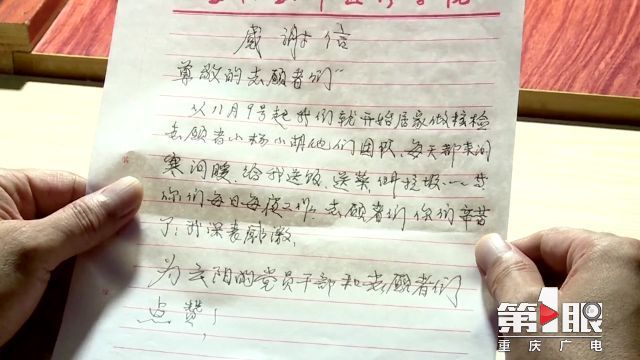 感谢信
尊敬的志愿者们
从11月9号起我们就开始居家做核检
志愿者小杨小胡他们团队，每天都来问
寒问暖，给我送饭、送菜、倒垃圾……
你们每日每夜 志愿者们你们辛苦
了！我深表感激。
为 的党员干部和志愿者们
点赞！
第1眼
重庆广电